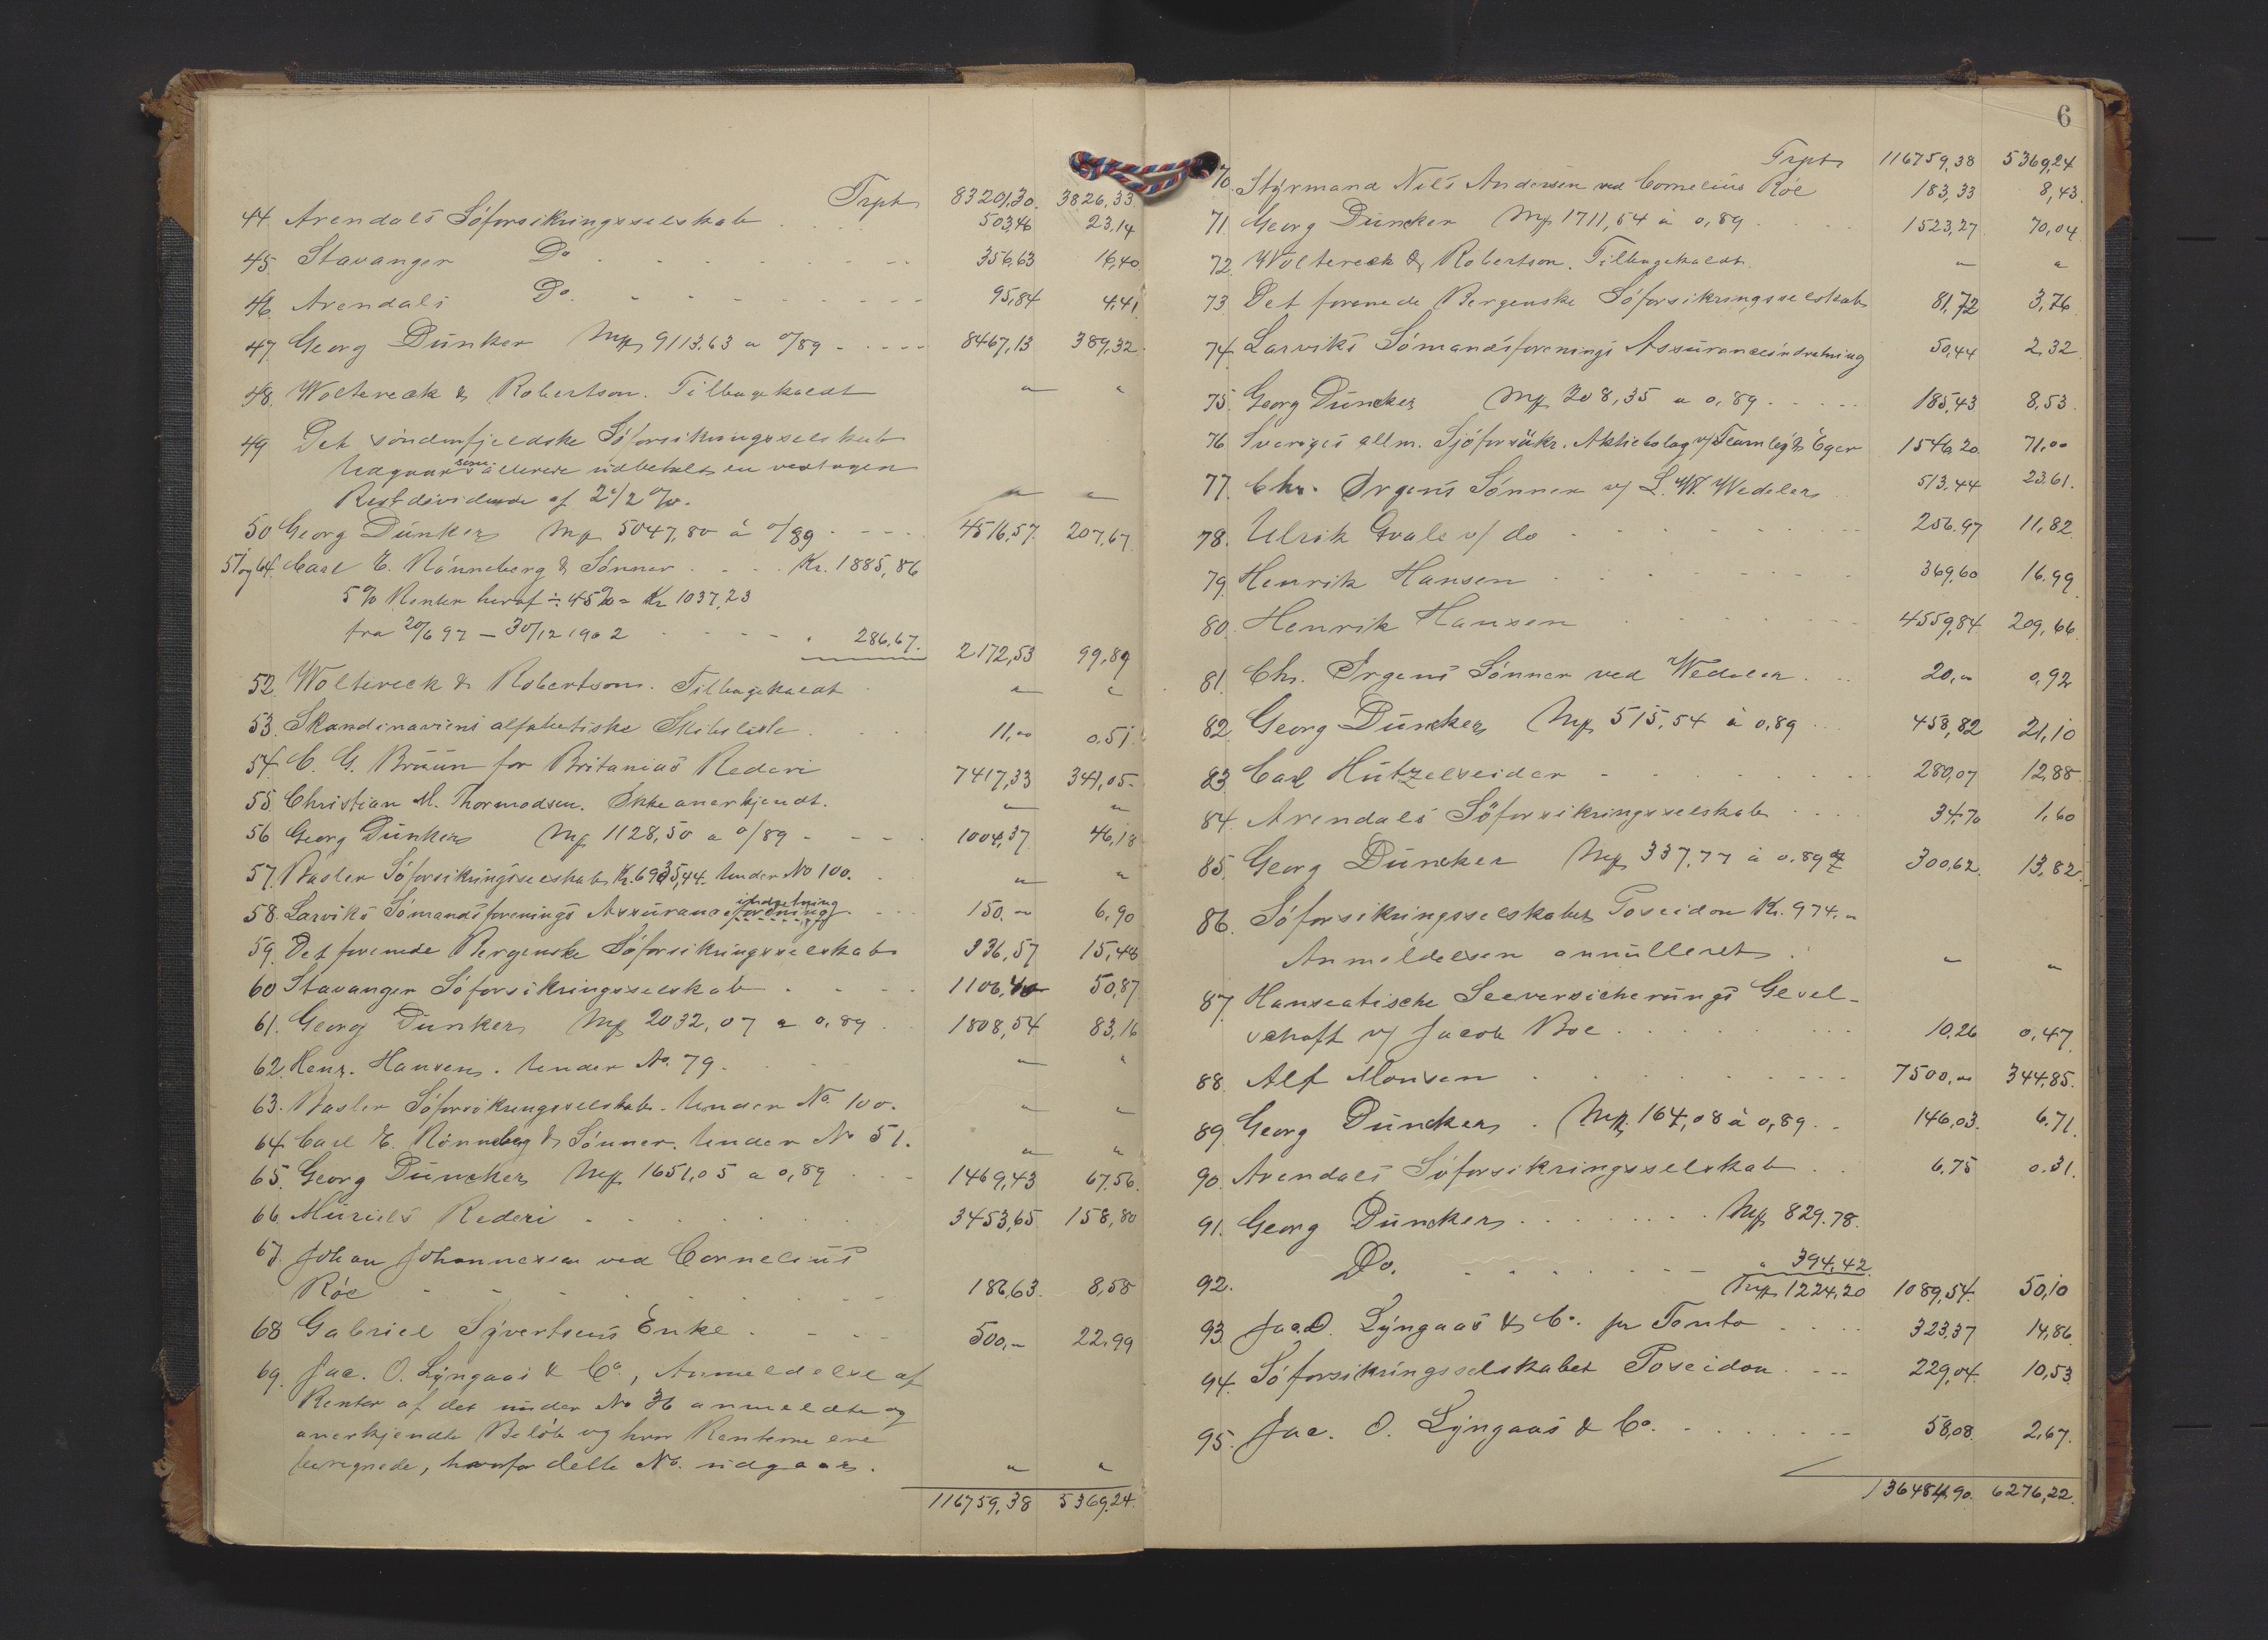 Trpt 83201,30. 3826,33.
44. Arendals Söforsikringsselskab . . . 503,46 23,14
45. Stavanger Do . . . 356,63 16,40
46. Arendals Do. . . . 95,84 4,41
47. Georg Dunker Mk 9113,63 a 0/89 . . . 8467,13 389,32.
48. Woltereck & Robertson. Tilbagekaldt " "
49 Det söndenfjeldske Söforsikringsselskab
Udgaar som allerede udbetalt en vedtagen
Restdividende af 2 1/2 %. " "
50 Georg Dunker Mk 5047,80 à 0/89 . . . 4516,57. 207,67.
51 og 64. Carl E. Rönneberg & Sönner . . . Kr. 1885,86
5% Renter heraf ÷ 45% = Kr 1037,23
fra 20/6 97 – 30/12 1902 . . . " 286,67. 2172,53 99,89
52. Woltereck & Robertson. Tilbagekaldt . " "
53. Skandinaviens alfabetiske Skibsliste . . . 11,00 0,51
54. C. G. Bruun for Britanias Rederi 7417,33 341,05.
55. Christian M. Thormodsen. Ikke anerkjendt. " "
56 Georg Dunker Mk 1128,50 a 0/89 . . . 1004,37 46,18
57. Basler Söforsikringsselskab Kr. 6935,44. Under No 100. " "
58. Larviks Sömandsforenings Assurance forening indretning . . . 150,00 6,90
59. Det forenede Bergenske Söforsikringsselskab 336,57 15,48
60 Stavanger Söforsikringsselskab . . . 1106,40 50,87
61. Georg Dunker Mk 2032,07 a 0,89 . . 1808,54 83,16
62. Henr. Hansen. Under No. 79. . . " "
63. Basler Söforsikringsselskab. Under No 100. " "
64. Carl E. Rönneberg & Sönner. Under No 51. " "
65. Georg Duncker Mk 1651,05 a 0,89 . . . 1469,43 67,56.
66. Muriels Rederi . . . 3453,65 158,80
67. Johan Johannessen ved Cornelius
Röe . . . 186,63. 8,58
68 Gabriel Syvertsens Enke . . . 500,00 22,99
69. Jac. O. Lyngaas & Co, Anmeldelse af
Renter af det under No 36 anmeldte og
anerkjendte Belöb og hvor Renterne ere
beregnede, hvorfor dette No. udgaar. " "
116759,38 5369,24.
6
Trpt 116759,38 5369,24
70. Styrmand Nils Andersen ved Cornelius Röe 183,33 8,43.
71. Georg Duncker Mk 1711,54 à 0,89 . . . 1523,27 70,04
72. Woltereck & Robertson. Tilbagekaldt. " "
73. Det forenede Bergenske Söforsikringsselskab 81,72 3,76
74. Larviks Sömandsforenings Assuranceindretning 50,44 2,32
75. Georg Duncker Mk 208,35 a 0,89 . . . 185,43 8,53.
76. Sveriges allm. Sjöförsäkr. Aktiebolag v/ Fearnley & Eger 1546,20 71,00
77. Chr. Irgens Sönner v/ L. W. Wedeler 513,44 23,61.
78. Ulrik Gvale v/ do . . . 256,97 11,82
79. Henrik Hansen . . . 369,60 16,99
80. Henrik Hansen . . . 4559,84 209,66.
81. Chr. Irgens Sönner ved Wedeler . . . 20,00 0,92
82. Georg Duncker Mk 515,54 à 0,89 . . 458,82 21,10
83. Carl Hützelseider . . . 280,07 12,88.
84. Arendals Söforsikringsselskab . . . 34,70 1,60
85. Georg Duncker Mk 337,77 à 0,89 300,62. 13,82.
86. Söforsikringsselskabet Poseidon Kr. 974,00
Anmeldelsen annulleret . " "
87. Hanseatische Seeversicherungs Gesel-
schaft v/ Jacob Boe . . . 10,26 0,47.
88. Alf Monsen . . . 7500,00 344,85.
89. Georg Duncker . Mk. 164,08 à 0,89 . . 146,03. 6,71.
90. Arendals Söforsikringsselskab . . 6,75 0,31.
91. Georg Duncker . . . Mk 829,78.
92. Do. . . . " 394,42.
Mk 1224,20 1089,54. 50,10
93. Jac. O. Lyngaas & Co. pr Tonto . . . 323,37 14,86
94. Söforsikringsselskabet Poseidon . . . 229,04. 10,53
95. Jac. O. Lyngaas & Co. . . . 58,08 2,67.
136484,90. 6276,22.